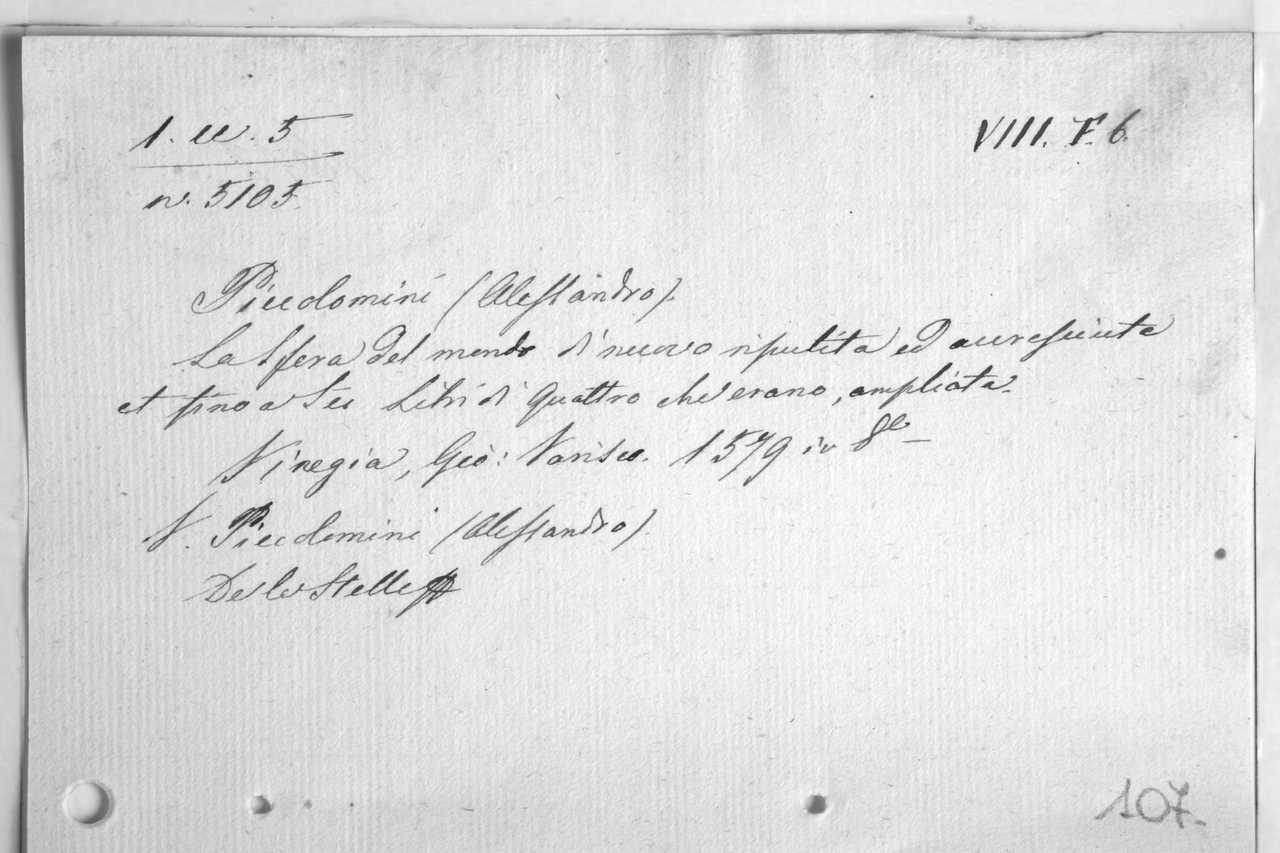 1. cc. 5
VIII. F. 6.
n. 5105.
Piccolomini (Alessandro).
La Sfera del mondo di nuovo ripulita ed accresciuta
et fino a Sei Libri di Quattro che erano, ampliata.
Vinegia, Giò: Varisco. 1579 in 8º
V. Piccolomini (Alessandro).
De le Stelle
107.